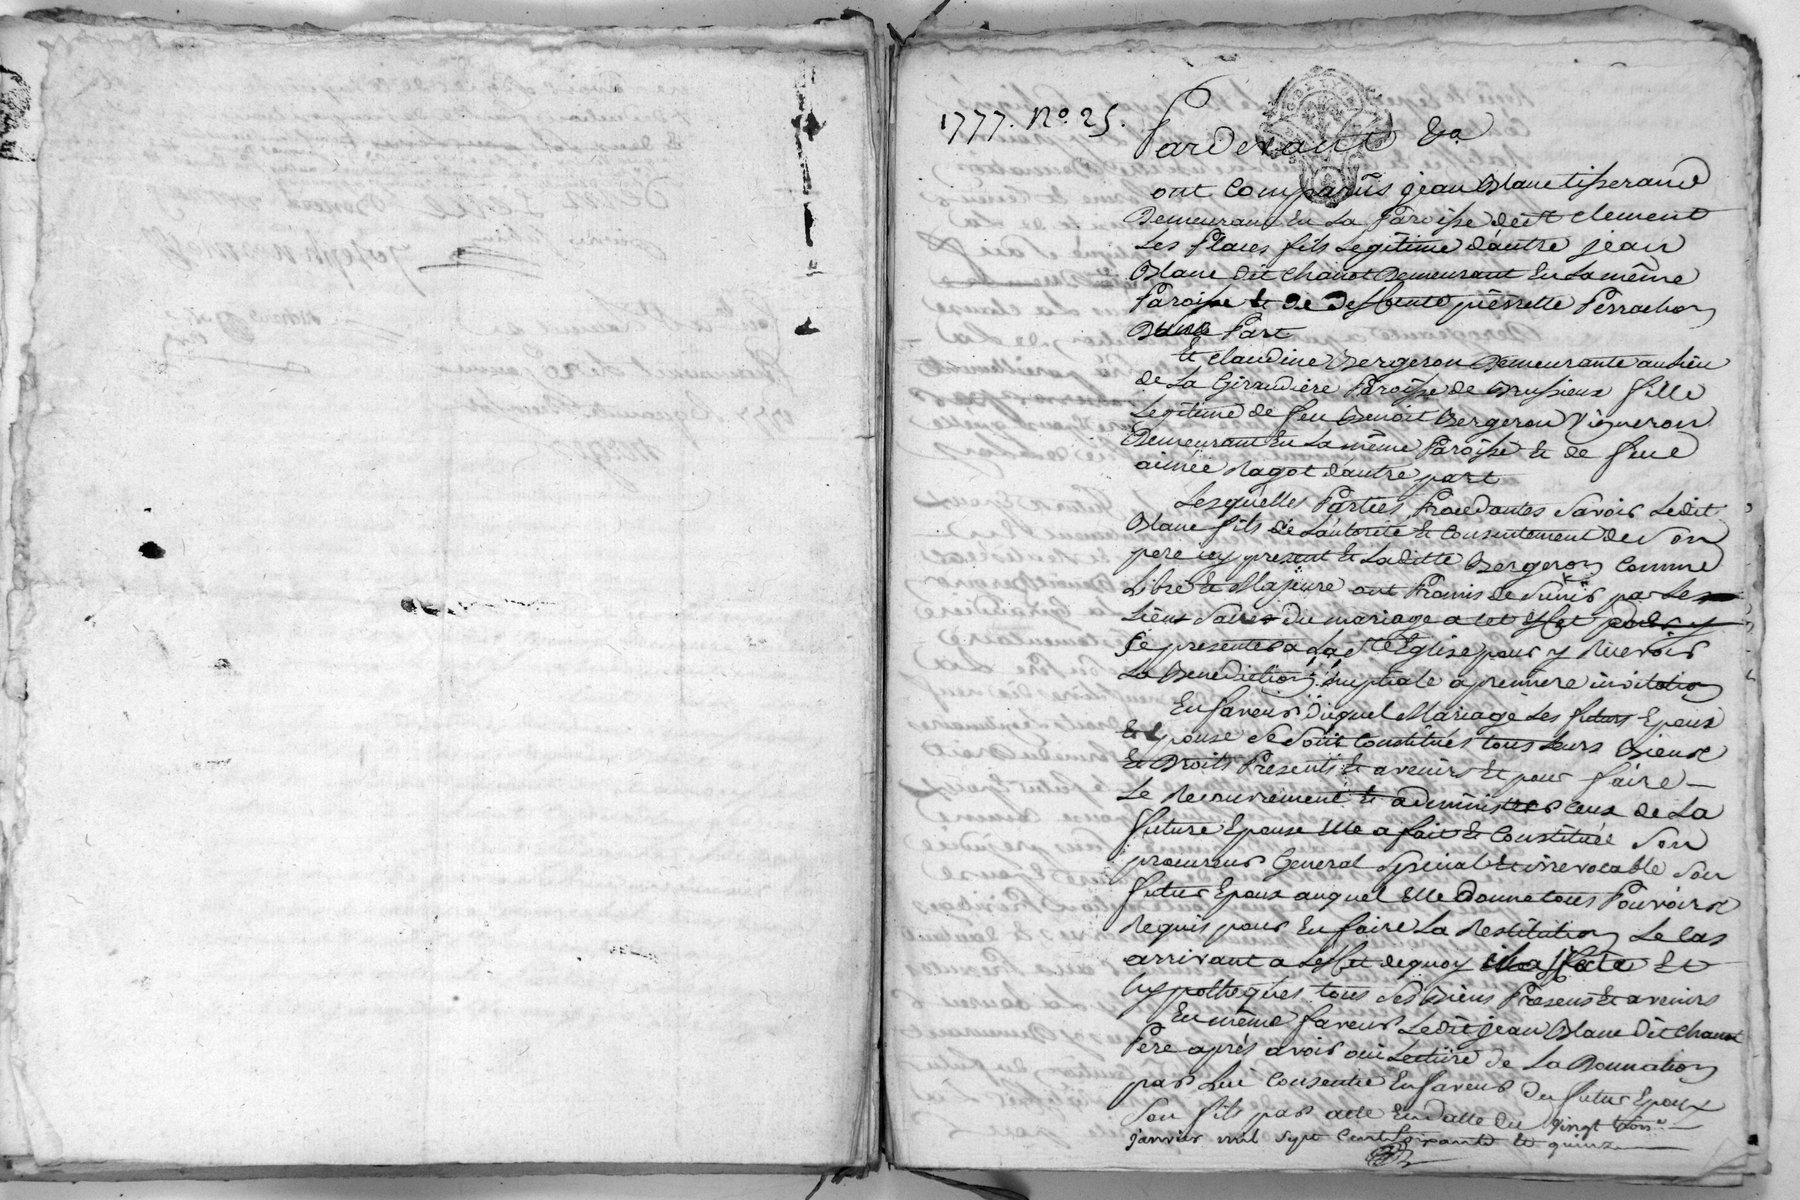 1777. No. 25.
Pardevant &a
ont Comparûs jean Blanc tisserand
Demeurant En La Paroisse de st Clement
Les Places fils Legitime dautre jean
Blanc dit Chanot Demeurant En La même
Paroisse & de Deffunte pierrette Perrachon
D'une Part
Et Claudine Bergeron Demeurante au lieu
de La Giraudiere Paroisse de Brussieux fille
Legitime de feu Benoit Bergeron Vigneron
Demeurant En La même Paroisse & de feue
aimée Ragot dautre part
Lesquelles Parties Procedantes Savoir Ledit
Blanc fils de L'autorité & Consentement de Son
pere icy present & Laditte Bergeron Comme
Libre & Majeure ont Promis de S'unir par Les
Liens Sacrés du mariage a cet Effet
Se presenter a La Ste Eglise pour y Recevoir
La Benediction nuptiale a premiere invitation
En faveur duquel Mariage Les futurs Epoux
& Epouse Se Sont Constitués tous Leurs Biens
& Droits Presents & avenirs & pour faire
Le Recouvrement & administrer Ceux de La
future Epouse Elle a fait & Constitué Son
procureur General Special & irrevocable Son
futur Epoux auquel Elle Donne tous Pouvoirs
Requis pour En faire La Restitution Le Cas
arrivant a L'effet de quoy il affecte Et
hypotheques tous Ses Biens Presens & avenirs
En même faveur Ledit jean Blanc dit Chanot
Pere après avoir oui Lecture de La Donnation
par Lui Consentie En faveur du futur Epoux
Son fils par acte En datte du Vingt
janvier mil Sept Cent Soixante & quinze